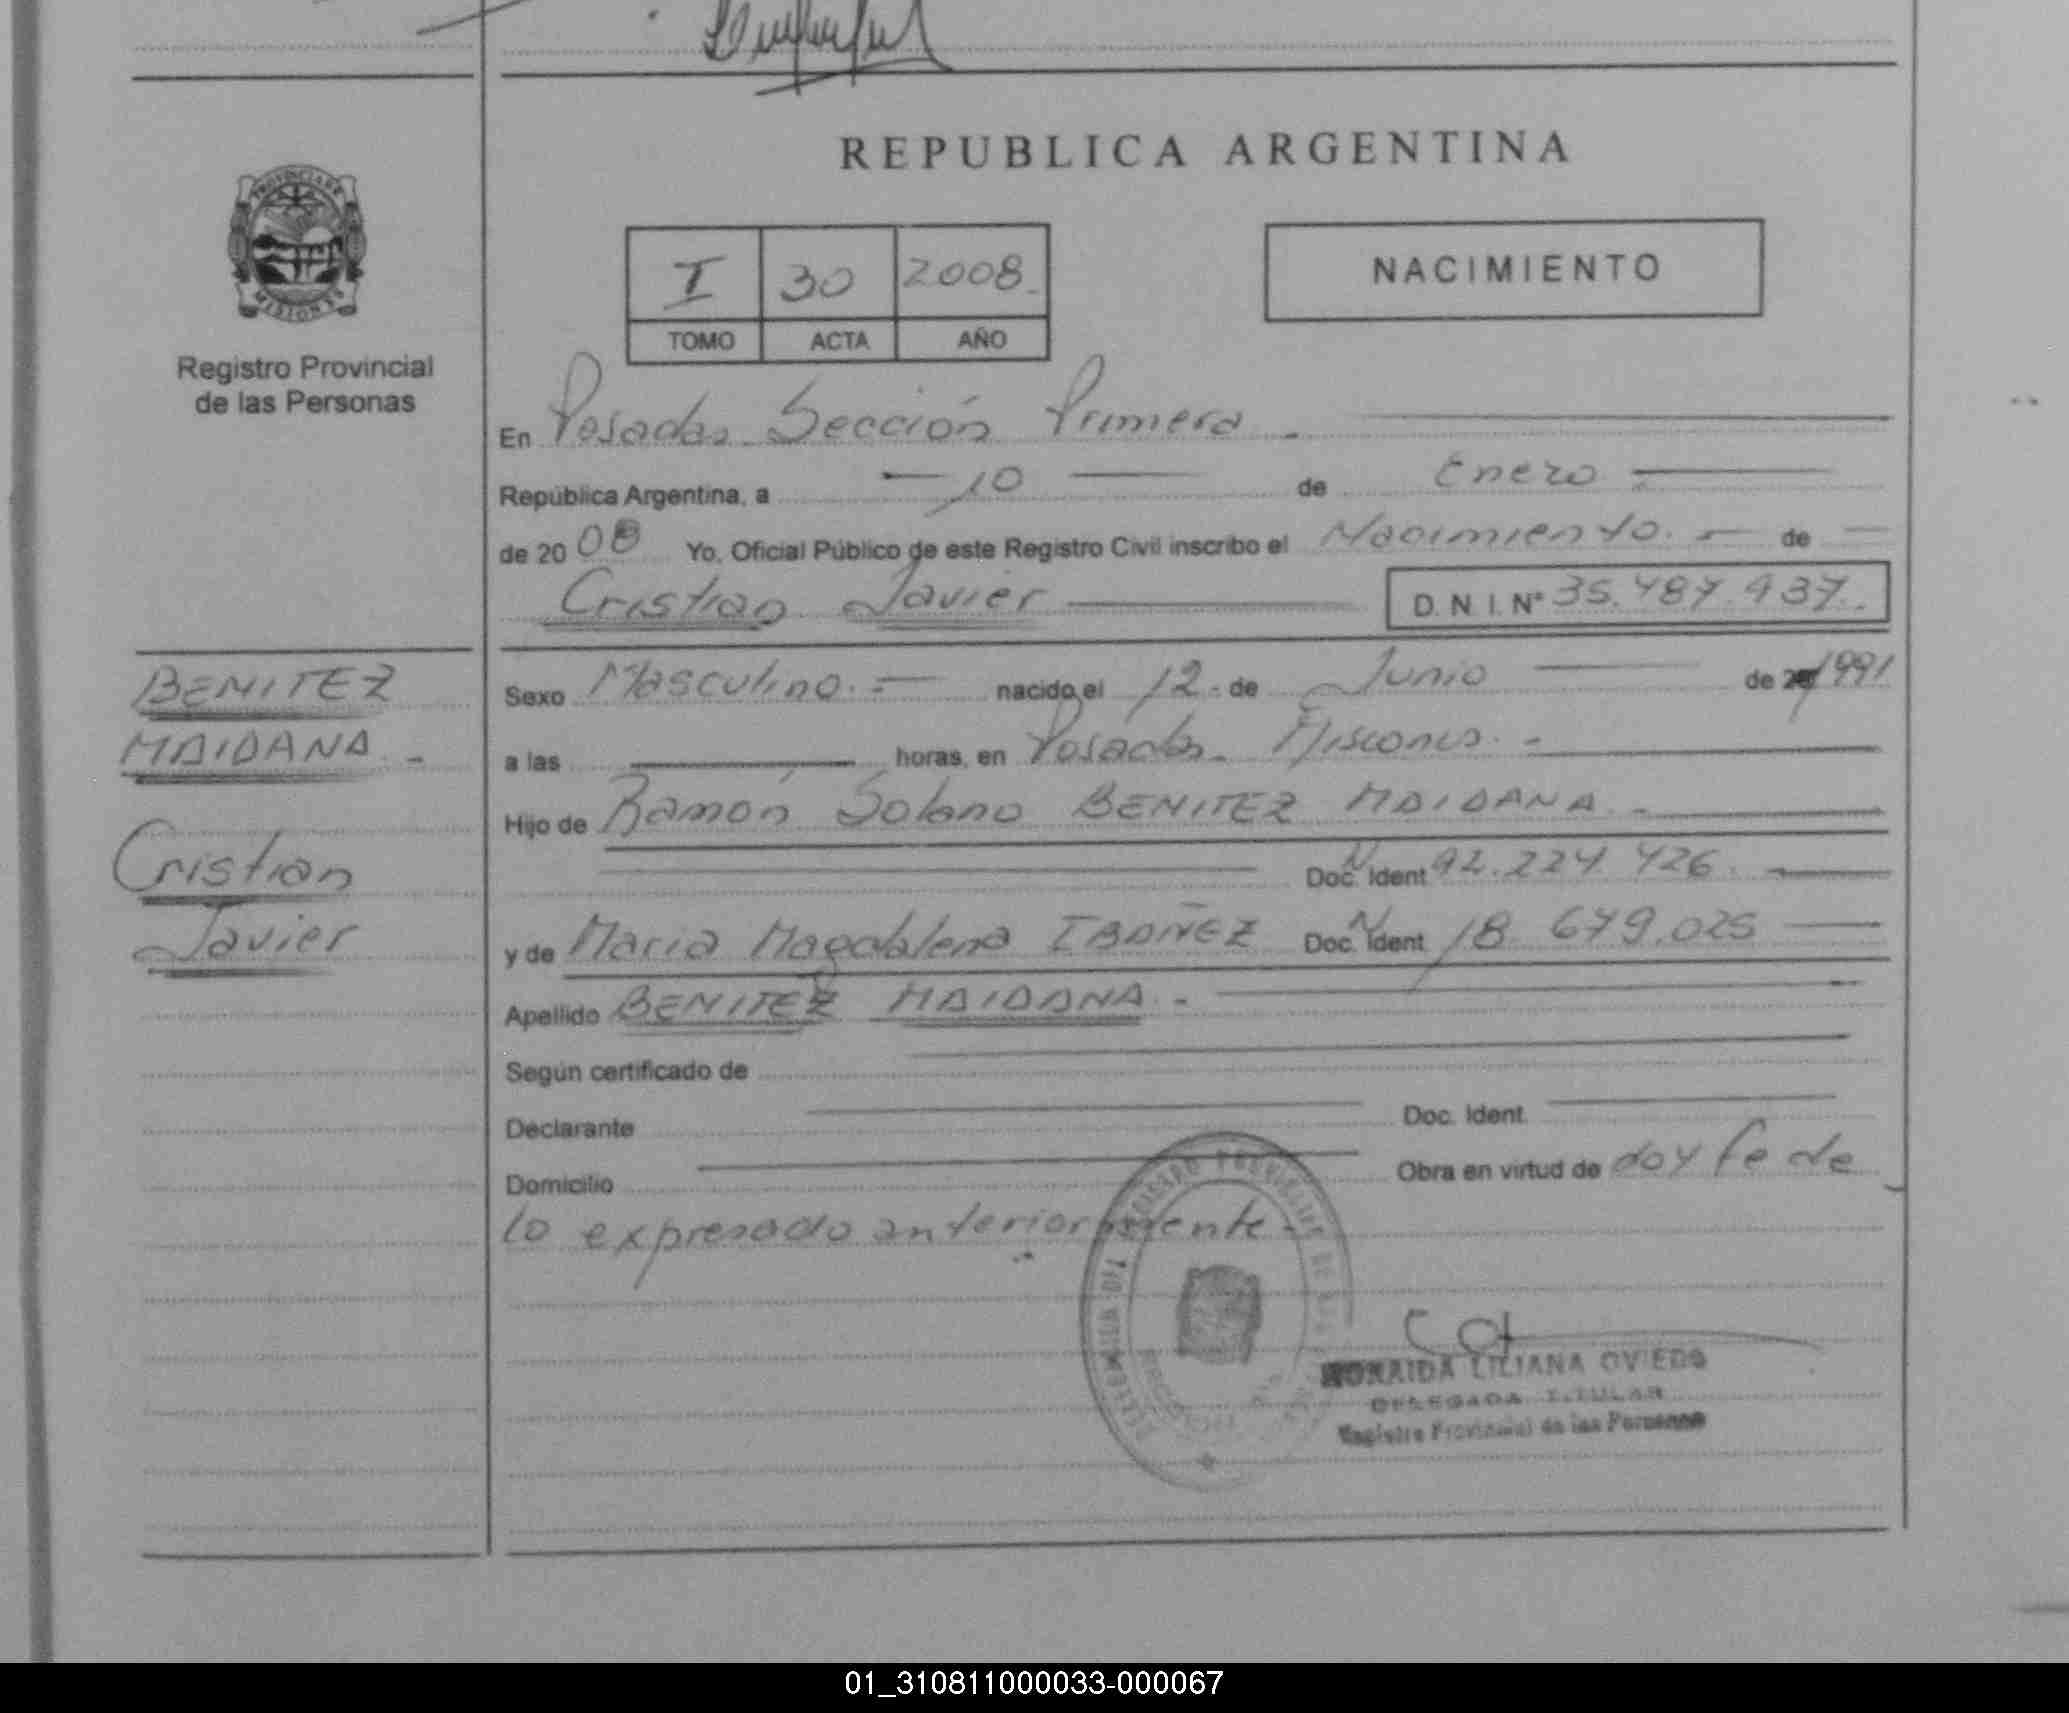 REPUBLICA ARGENTINA
PROVINCIA DE
MISIONES
Registro Provincial
de las Personas
I 30 2008
TOMO ACTA AÑO
NACIMIENTO
En Posadas Sección Primera
República Argentina, a 10 de Enero
de 20 08 Yo, Oficial Público de este Registro Civil inscribo el Nacimiento. de
Cristian Javier D.N.I. Nº 35.487.937.
BENITEZ
MAIDANA
Cristian
Javier
Sexo Masculino. nacido el 12 de Junio de 1991
a las horas, en Posadas Misiones.
Hijo de Ramón Solano BENITEZ MAIDANA
Doc. Ident N 92.224.426.
y de Maria Magdalena IBAÑEZ Doc. Ident N 18.679.025
Apellido BENITEZ MAIDANA.
Según certificado de
Declarante Doc. Ident.
Domicilio Obra en virtud de doy fe de
lo expresado anteriormente
LILIANA OVIEDO
DELEGADA TITULAR
Registro Provincial de las Personas
01_310811000033-000067